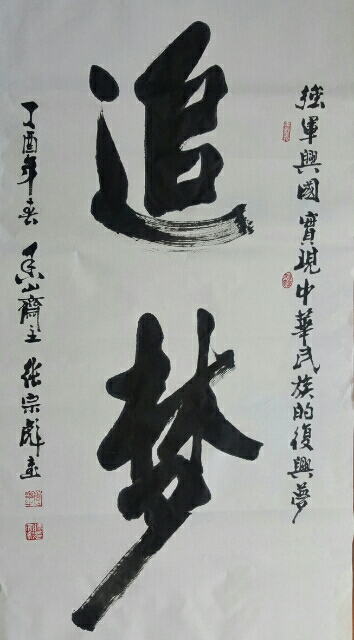 強軍興國實現中華民族的復興夢
追梦
丁酉年春 山齋主 張宗彪書